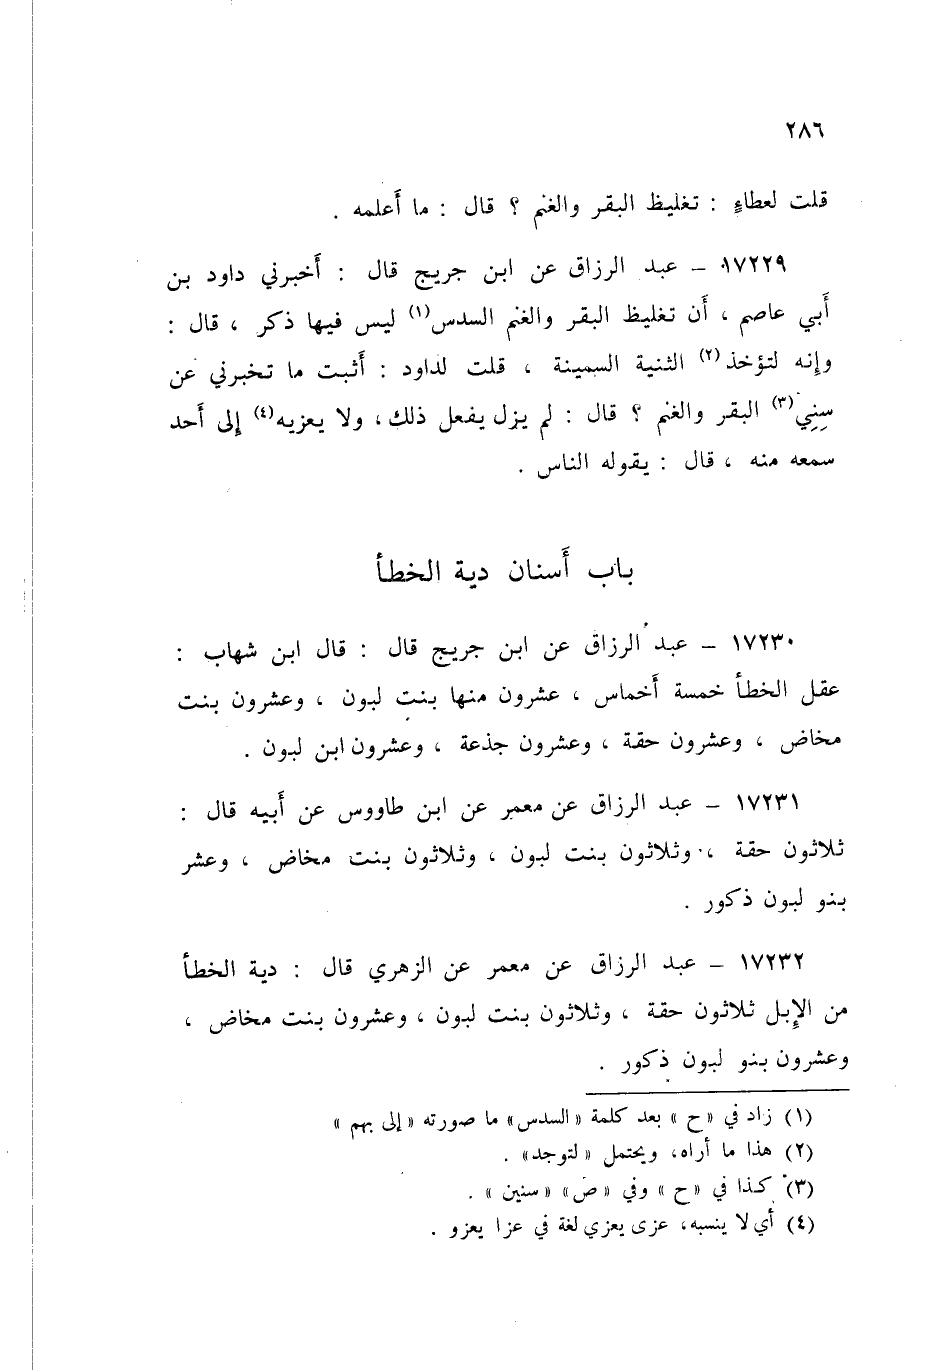 ٢٨٦
قلت لعطاءٍ : تغليظ البقر والغنم ؟ قال : ما أَعلمه .
١٧٢٢٩ – عبد الرزاق عن ابن جريج قال : أَخبرني داود بن
أَبي عاصم ، أَن تغليظ البقر والغنم السدس(١) ليس فيها ذكر ، قال :
وإِنه لتؤخذ(٢) الثنية السمينة ، قلت لداود : أَثبت ما تخبرني عن
سِنِيّ(٣) البقر والغنم ؟ قال : لم يزل يفعل ذلك ، ولا يعزيه(٤) إِلى أَحد
سمعه منه ، قال : يقوله الناس .
باب أَسنان دية الخطأ
١٧٢٣٠ – عبد الرزاق عن ابن جريج قال : قال ابن شهاب :
عقل الخطأ خمسة أَخماس ، عشرون منها بنت لبون ، وعشرون بنت
مخاض ، وعشرون حقة ، وعشرون جذعة ، وعشرون ابن لبون .
١٧٢٣١ – عبد الرزاق عن معمر عن ابن طاووس عن أَبيه قال :
ثلاثون حقة ، وثلاثون بنت لبون ، وثلاثون بنت مخاض ، وعشر
بنو لبون ذكور .
١٧٢٣٢ – عبد الرزاق عن معمر عن الزهري قال : دية الخطأ
من الإِبل ثلاثون حقة ، وثلاثون بنت لبون ، وعشرون بنت مخاض ،
وعشرون بنو لبون ذكور .
(١) زاد في «ح» بعد كلمة «السدس» ما صورته «إلى بهم»
(٢) هذا ما أراه، ويحتمل «لتوجد» .
(٣) كذا في «ح» وفي «ص» «سنين» .
(٤) أي لا ينسبه، عزى يعزي لغة في عزا يعزو .